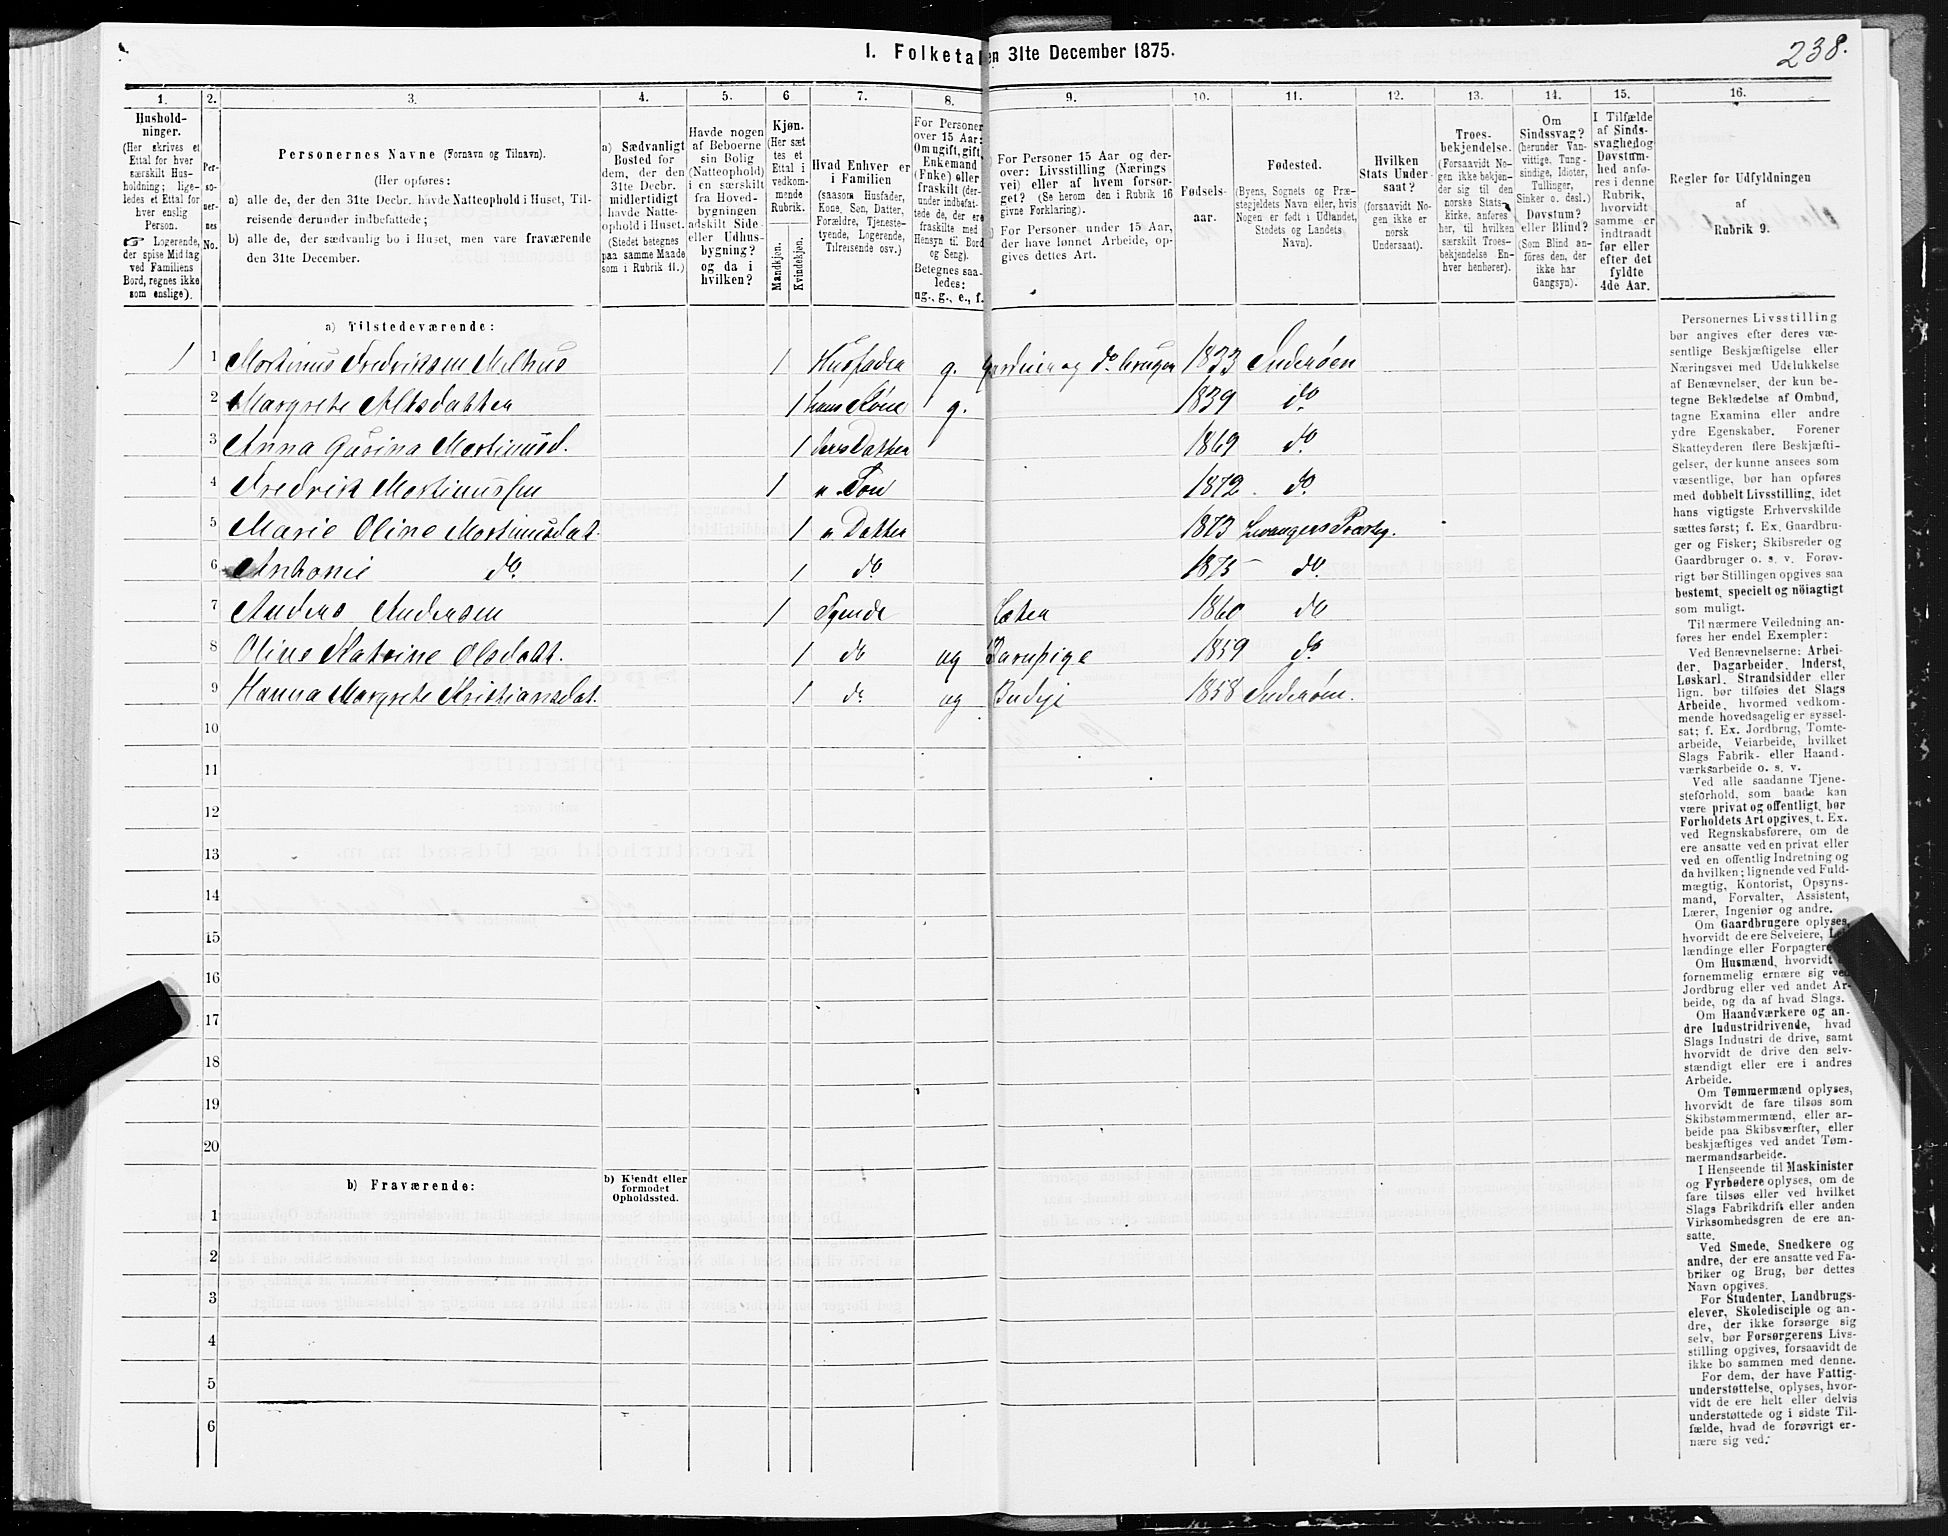 I. Folketal en 31te December 1875.
238.
1. 2. 3. 4. 5. 6 7. 8. 9. 10. 11. 12. 13. 14. 15. 16.
Hushold-
ninger.
(Her skrives et
Ettal for hver
særskilt Hus-
holdning; lige-
ledes et Ettal for
hver enslig
Person.
☞ Logerende,
der spise Middag
ved Familiens
Bord, regnes ikke
som enslige).
Per-
so-
ner-
nes
No.
Personernes Navne (Fornavn og Tilnavn).
(Her opføres:
a) alle de, der den 31te Decbr. havde Natteophold i Huset, Til-
reisende derunder indbefattede;
b) alle de, der sædvanlig bo i Huset, men vare fraværende
den 31te December.
a) Sædvanligt
Bosted for
dem, der den
31te Decbr.
midlertidigt
havde Natte-
ophold i Huset.
(Stedet betegnes
paa samme Maade
som i Rubrik 11.)
Havde nogen
af Beboerne
sin Bolig
(Natteophold)
i en særskilt
fra Hoved-
bygningen
adskilt Side-
eller Udhus-
bygning?
og da i
hvilken?
Kjøn.
(Her sæt-
tes et
Ettal i
vedkom-
mende
Rubrik.
Mandkjøn.
Kvindekjøn.
Hvad Enhver er
i Familien
(saasom Husfader,
Kone, Søn, Datter,
Forældre, Tjeneste-
tyende, Logerende,
Tilreisende osv.)
For Personer
over 15 Aar:
Om ugift, gift,
Enkemand
(Enke) eller
fraskilt (der-
under indbefat-
tede de, der ere
fraskilte med
Hensyn til Bord
og Seng).
Betegnes saa-
ledes:
ug., g., e., f.
For Personer 15 Aar og der-
over: Livsstilling (Nærings
vei) eller af hvem forsør-
get? (Se herom den i Rubrik 16
givne Forklaring).
) For Personer under 15 Aar,
der have lønnet Arbeide, op-
gives dettes Art.
Fødsels-
aar.
Fødested.
(Byens, Sognets og Præ-
stegjeldets Navn eller, hvis
Nogen er født i Udlandet,
Stedets og Landets
Navn).
Hvilken
Stats Under-
saat?
(forsaavidt No-
gen ikke er
norsk
Undersaat).
Troes-
bekjendelse.
(Forsaavidt No-
gen ikke bekjen-
der sig til den
norske Stats-
kirke, anføres
her, til hvilken
særskilt Troes-
bekjendelse En-
hver henhører).
Om
Sindssvag?
(herunder Van-
vittige, Tung-
sindige, Idioter,
Tullinger,
Sinker o. desl.)
Døvstum?
eller Blind?
(Som Blind an-
føres den, der
ikke har
Gangsyn).
I Tilfælde
af Sinds-
svaghed og
Døvstum-
hed anfø-
res i denne
Rubrik,
hvorvidt
samme er
indtraadt
før eller
efter det
fyldte
4de Aar.
Regler for Udfyldningen
af
Rubrik 9.
a) Tilstedeværende:
1 1 Mortinus Fredriksen Melhus 1 Husfader g. Gardeier og do bruger 1833 Inderøen
2 Margrete Alksdatter 1 hans Kone g. 1839 do
3 Anna Gurina Mortinusd. 1 deres Datter 1869 do
4 Fredrik Mortinussen 1 " Søn 1872 do
5 Marie Oline Mortinusdat. 1 " Datter 1873 Levangers Præsteg.
6 Antonie do. 1 do 1875 do
7 Anders Andersen 1 Tyende Gæter 1860 do
8 Oline Katrine Olsdatt. 1 do ug Barnpige 1859 do
9 Hanna Margrete Kristiansdat. 1 do ug Budeje 1858 Inderøen.
10
11
12
13
14
15
16
17
18
19
20
b) Fraværende:
b) Kjendt eller
formodet
Opholdssted.
1
2
3
4
5
6
Personernes Livsstilling
bør angives efter deres væ-
sentlige Beskjæftigelse eller
Næringsvei med Udelukkelse
af Benævnelser, der kun be-
tegne Beklædelse af Ombud,
tagne Examina eller andre
ydre Egenskaber. Forener
Skatteyderen flere Beskjæfti-
gelser, der kunne ansees som
væsentlige, bør han opføres
med dobbelt Livsstilling, idet
hans vigtigste Erhvervskilde
sættes først; f. Ex. Gaardbru-
ger og Fisker; Skibsreder og
Gaardbruger o. s. v. Forøv-
rigt bør Stillingen opgives saa
bestemt, specielt og nøiagtigt
som muligt.
Til nærmere Veiledning an-
føres her endel Exempler:
Ved Benævnelserne: Arbei-
der, Dagarbeider, Inderst,
Løskarl, Strandsidder eller
lign. bør tilføies det Slags
Arbeide, hvormed vedkom-
mende hovedsagelig er syssel-
sat; f. Ex. Jordbrug, Tomte-
arbeide, Veiarbeide, hvilket
Slags Fabrik- eller Haand-
værksarbeide o. s. v.
Ved alle saadanne Tjene-
steforhold, som baade kan
være privat og offentligt, bør
Forholdets Art opgives, t. Ex.
ved Regnskabsførere, om de
ere ansatte ved en privat eller
ved en offentlig Indretning og
da hvilken; lignende ved Fuld-
mægtig, Kontorist, Opsyns-
mand, Forvalter, Assistent,
Lærer, Ingeniør og andre.
Om Gaardbrugere oplyses,
hvorvidt de ere Selveiere, Lei
lændinge eller Forpagtere
Om Husmænd, hvorvidt
fornemmelig ernære sig ved
Jordbrug eller ved andet Ar-
beide, og da af hvad Slags.
Om Haandværkere og an-
dre Industridrivende, hvad
Slags Industri de drive, samt
hvorvidt de drive den selv-
stændigt eller ere i andres
Arbeide.
Om Tømmermænd oplyses,
hvorvidt de fare tilsøs som
Skibstømmermænd, eller ar-
beide paa Skibsværfter, eller
beskjæftiges ved andet Tøm-
mermandsarbeide.
I Henseende til Maskinister
og Fyrbødere oplyses, om de
fare tilsøs eller ved hvilket
Slags Fabrikdrift eller anden
Virksomhedsgren de ere an-
satte.
Ved Smede, Snedkere og
andre, der ere ansatte ved Fa-
briker og Brug, bør dettes
Navn opgives.
For Studenter, Landbrugs-
elever, Skoledisciple og an-
dre, der ikke forsørge sig
selv, bør Forsørgerens Livs-
stilling opgives, forsaavidt de
ikke bo sammen med denne.
For dem, der have Fattig-
understøttelse, oplyses, hvor-
vidt de ere helt eller delvis
understøttede og i sidste Til-
fælde, hvad de forøvrigt er-
nære sig ved.